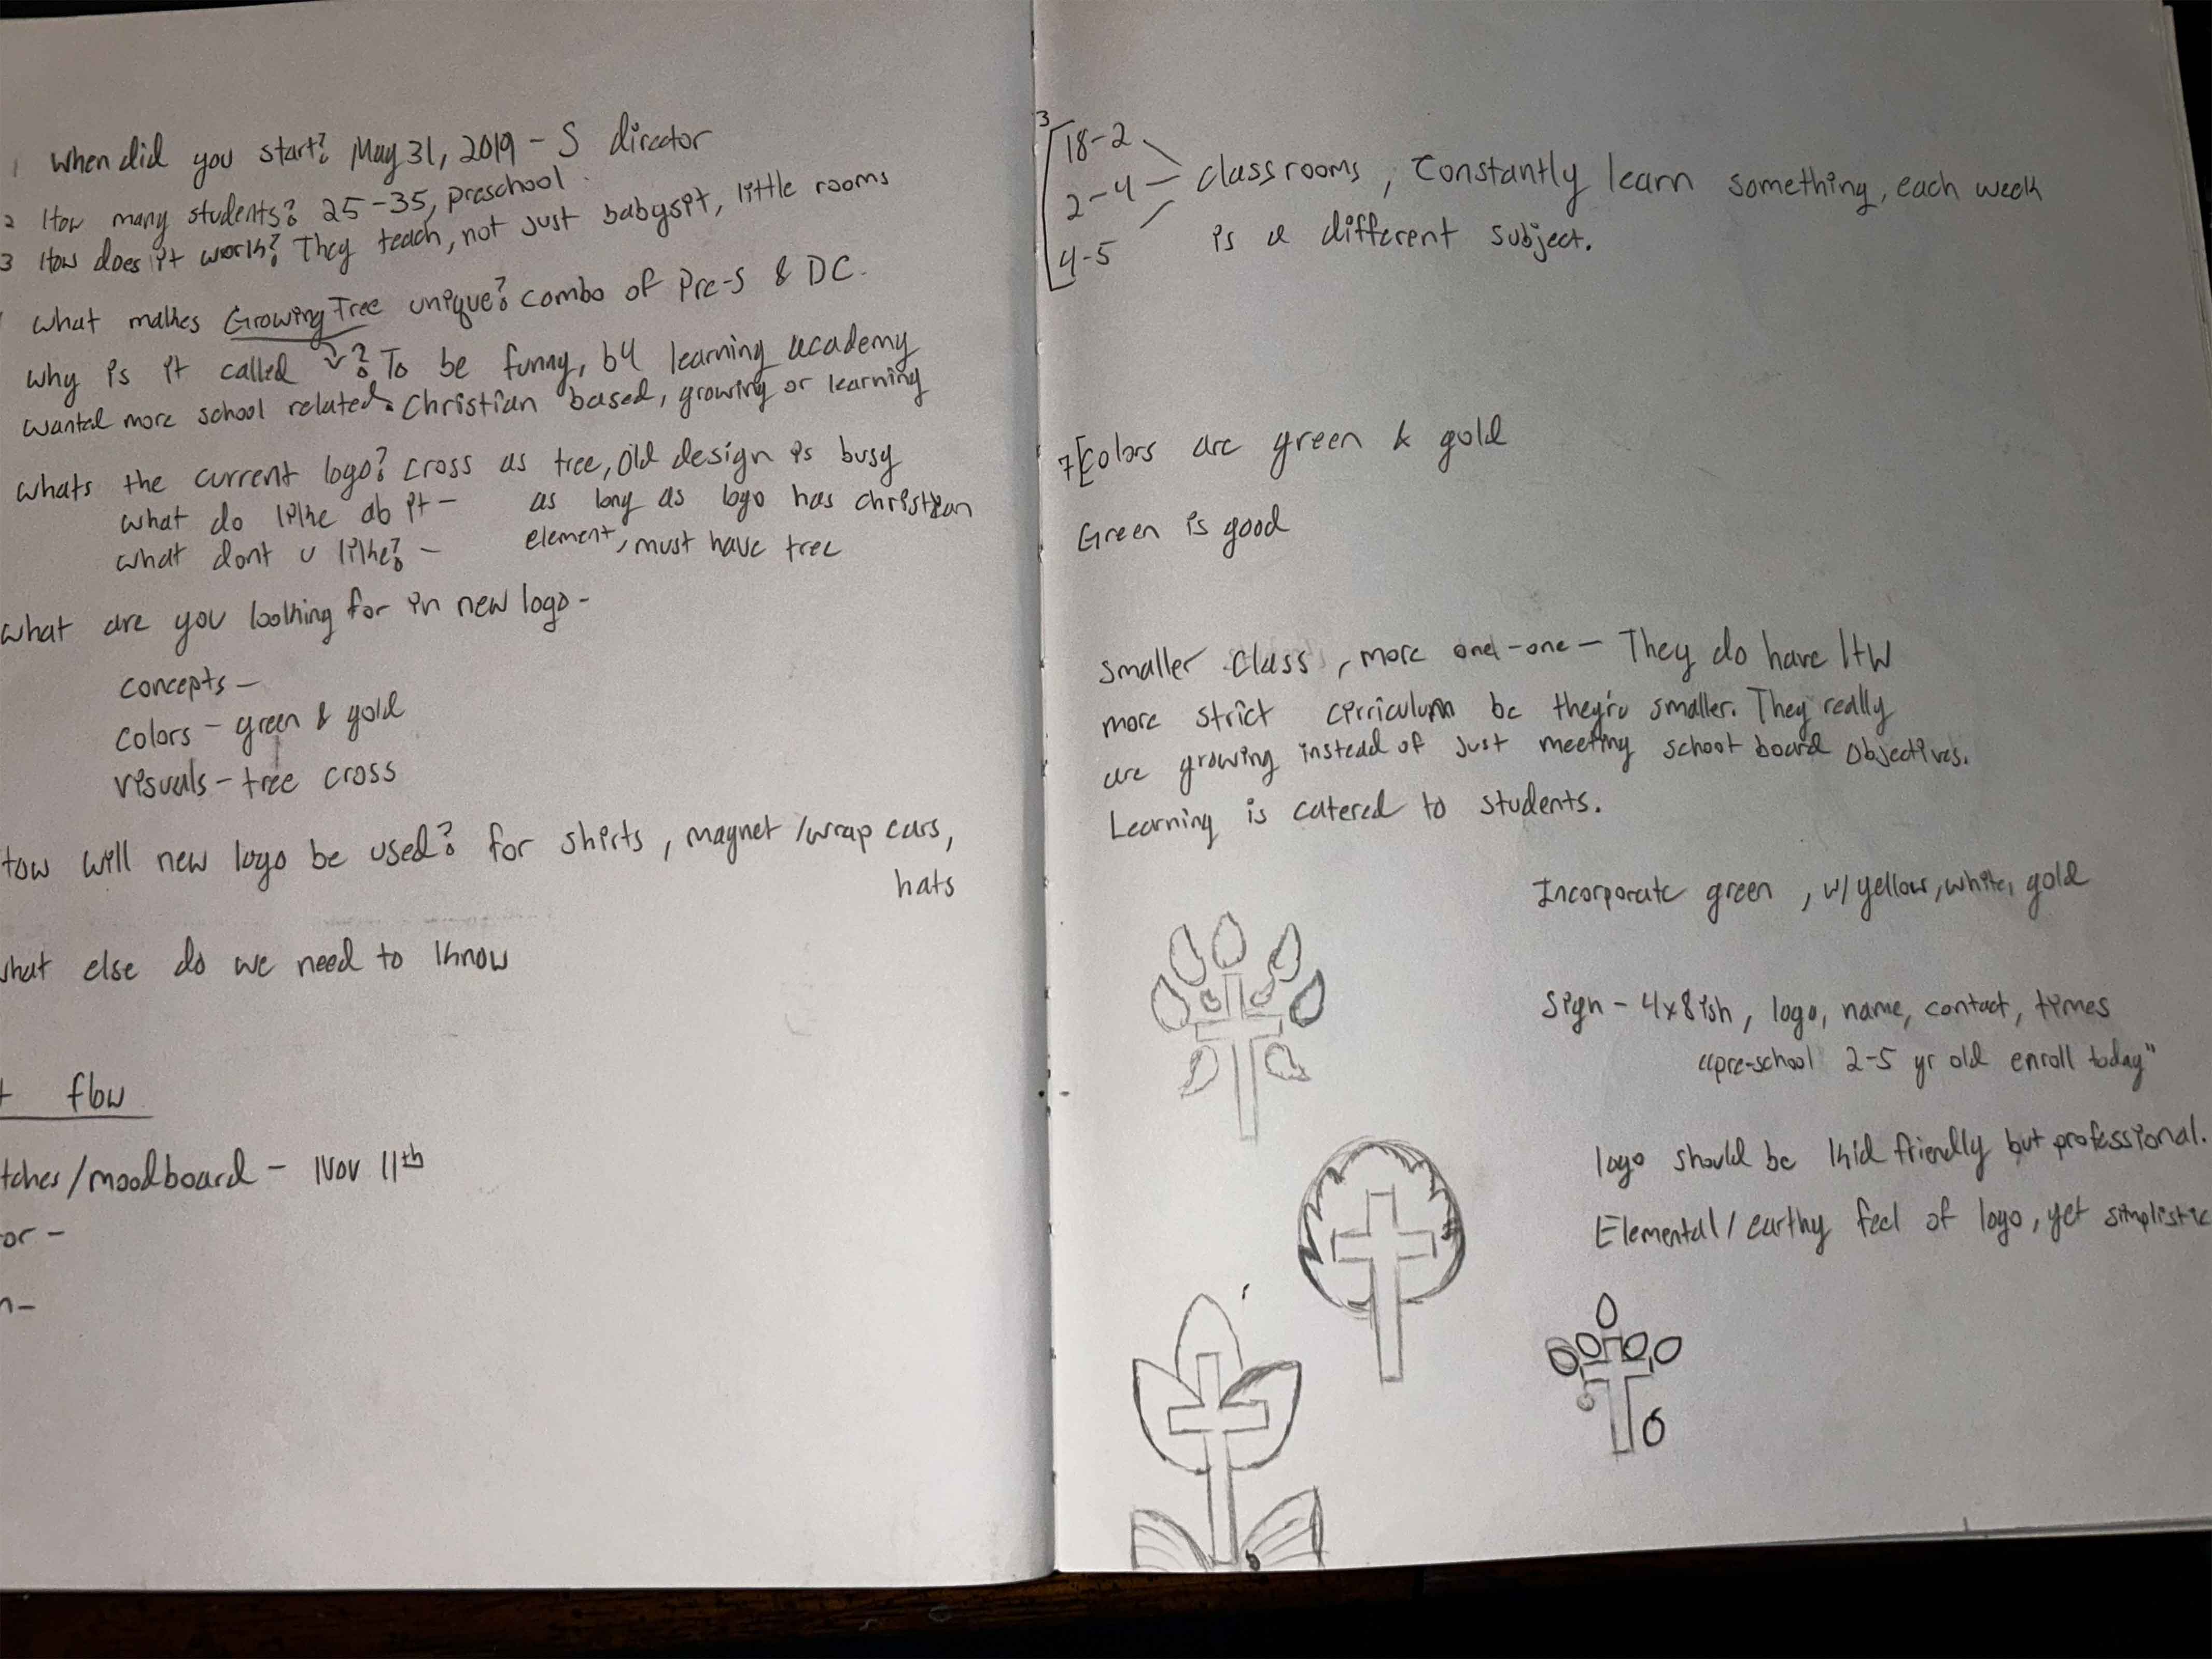 1 When did you start? May 31, 2019 - S director
2 How many students? 25-35, preschool.
3 How does it work? They teach, not just babysit, little rooms
what makes Growing Tree unique? combo of Pre-S & DC.
why is it called ? To be funny, b4 learning academy
wanted more school related. Christian based, growing or learning
whats the current logo? cross as tree, old design is busy
what do like ab it - as long as logo has christian
what dont u like? - element, must have tree
what are you looking for in new logo -
concepts -
colors - green & gold
visuals - tree cross
How will new logo be used? for shirts, magnet/wrap cars,
hats
what else do we need to know
flow
tches/moodboard - Nov 11th
or -
n -
3
18-2
2-4 - classrooms, Constantly learn something, each week
4-5 is a different subject.
7 [Colors are green & gold
Green is good
Smaller class, more one-one - They do have HW
more strict cirriculum bc they're smaller. They really
are growing instead of just meeting school board objectives.
Learning is catered to students.
Incorporate green, w/ yellow, white, gold
Sign - 4x8ish, logo, name, contact, times
"pre-school 2-5 yr old enroll today"
logo should be kid friendly but professional.
Elemental/earthy feel of logo, yet simplistic